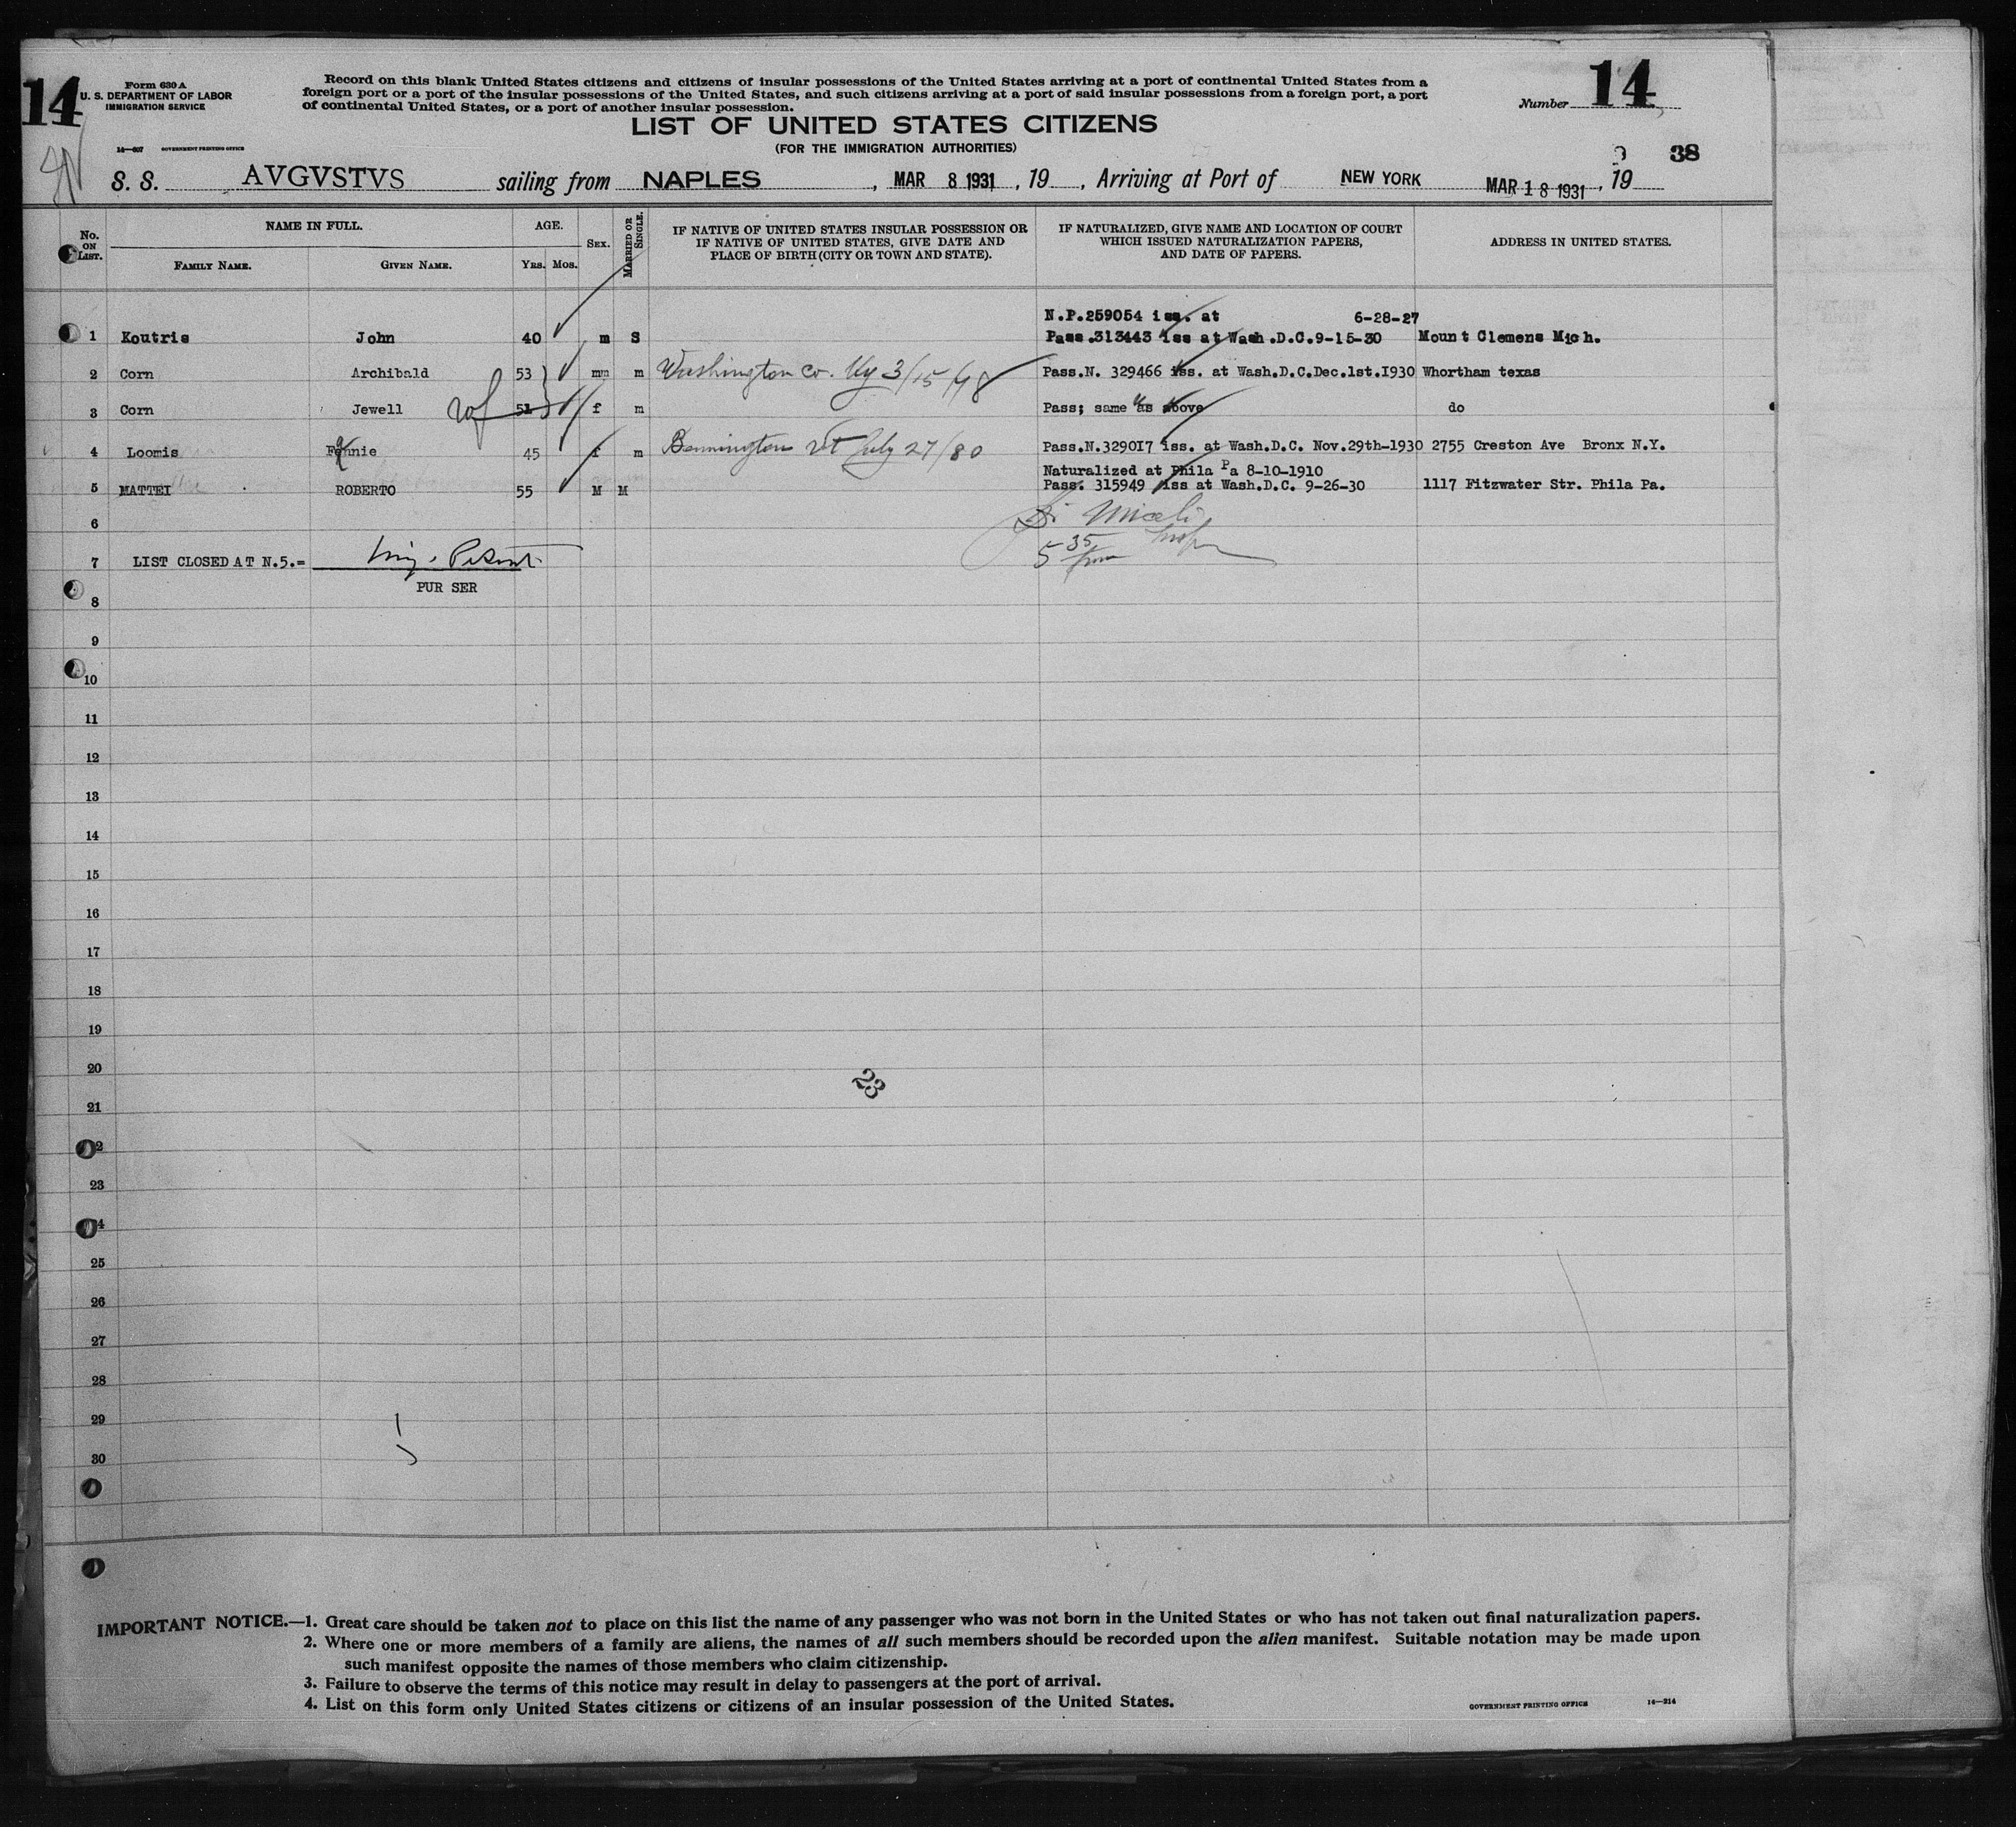 14
Form 630 A
U. S. DEPARTMENT OF LABOR
IMMIGRATION SERVICE
14—607 GOVERNMENT PRINTING OFFICE
Record on this blank United States citizens and citizens of insular possessions of the United States arriving at a port of continental United States from a
foreign port or a port of the insular possessions of the United States, and such citizens arriving at a port of said insular possessions from a foreign port, a port
of continental United States, or a port of another insular possession.
Number 14
LIST OF UNITED STATES CITIZENS
(FOR THE IMMIGRATION AUTHORITIES)
38
S. S. AVGVSTVS sailing from NAPLES, MAR 8 1931, 19 , Arriving at Port of NEW YORK MAR 18 1931, 19
No. ON LIST. NAME IN FULL. FAMILY NAME. GIVEN NAME. AGE. YRS. MOS. SEX. MARRIED OR SINGLE. IF NATIVE OF UNITED STATES INSULAR POSSESSION OR IF NATIVE OF UNITED STATES, GIVE DATE AND PLACE OF BIRTH (CITY OR TOWN AND STATE). IF NATURALIZED, GIVE NAME AND LOCATION OF COURT WHICH ISSUED NATURALIZATION PAPERS, AND DATE OF PAPERS. ADDRESS IN UNITED STATES.
N.P.259054 iss. at 6-28-27
1 Koutris John 40 m S Pass.313443 iss at Wash.D.C.9-15-30 Mount Clemens Mich.
2 Corn Archibald 53 mm m Washington Co. Ky 3/15/78 Pass.N. 329466 iss. at Wash.D.C.Dec.1st.I930 Whortham texas
3 Corn Jewell 51 f m Pass; same as above do
4 Loomis Fannie 45 f m Bennington Vt July 27/80 Pass.N.329017 iss. at Wash.D.C. Nov.29th-1930 2755 Creston Ave Bronx N.Y.
Naturalized at Phila Pa 8-10-1910
5 MATTEI ROBERTO 55 M M Pass. 315949 iss at Wash.D.C. 9-26-30 1117 Fitzwater Str. Phila Pa.
6
7 LIST CLOSED AT N.5.=
5 35
PUR SER
8
9
10
11
12
13
14
15
16
17
18
19
20
23
21
2
23
4
25
26
27
28
29
30
IMPORTANT NOTICE.—1. Great care should be taken not to place on this list the name of any passenger who was not born in the United States or who has not taken out final naturalization papers.
2. Where one or more members of a family are aliens, the names of all such members should be recorded upon the alien manifest. Suitable notation may be made upon
such manifest opposite the names of those members who claim citizenship.
3. Failure to observe the terms of this notice may result in delay to passengers at the port of arrival.
4. List on this form only United States citizens or citizens of an insular possession of the United States.
GOVERNMENT PRINTING OFFICE 14—214